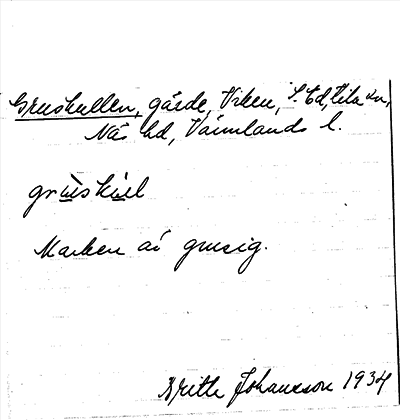 Gruskullen, gärde, Viken, S. Ed, Lila sn,
Näs hd, Värmlands l.
gruskul
Marken är grusig.
Britta Johansson 1934